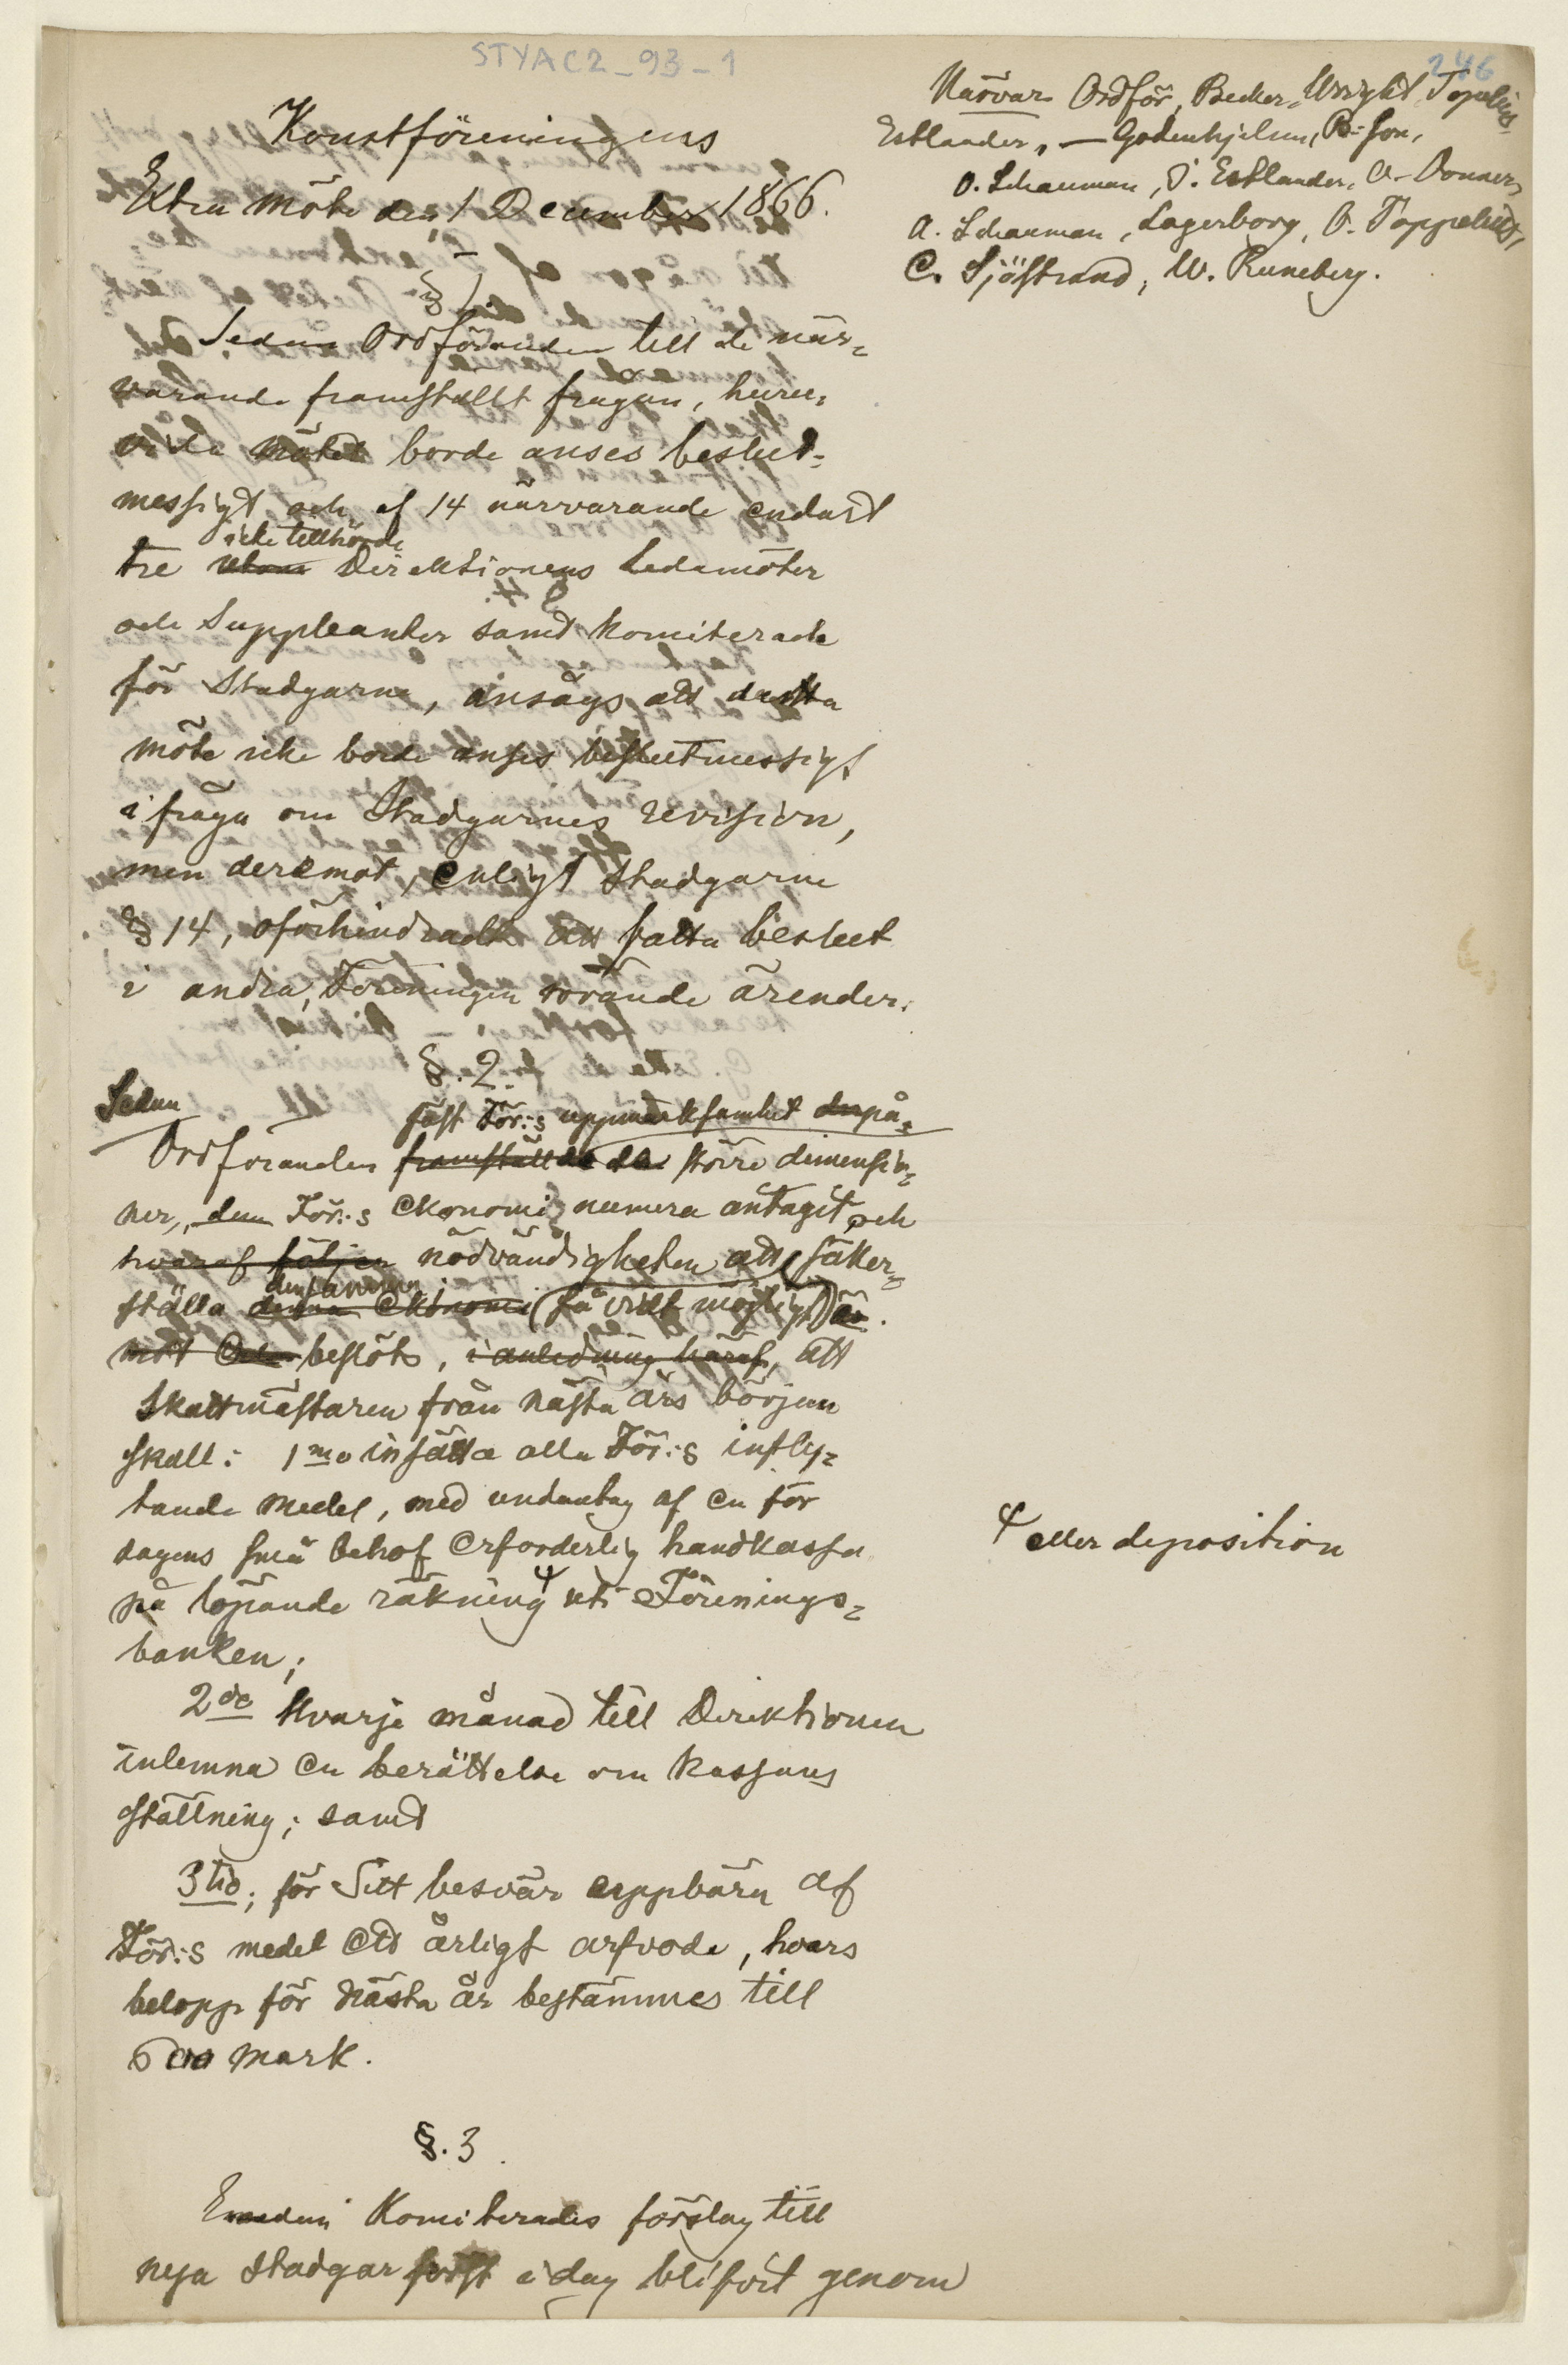 STYAC2_93_1
246
Konstföreningens
Extra möte den 1 December 1866.
Närvar. Ordför, Becker, Wright, Topelius,
Estlander, — Godenhjelm, B-son,
O. Schauman, J. Estlander, O. Donner,
A. Schauman, Lagerborg, O. Toppelius,
C. Sjöstrand, W. Runeberg.
§ 1.
Sedan Ordföranden till de när-
varande framställt frågan, huru-
vida mötet borde anses beslut-
messigt och af 14 närvarande endast
icke tillhörde
tre utom Direktionens Ledamöter
och Suppleanter samt Komiterade
för Stadgarne, ansågs att detta
möte icke borde anses beslutmessigt
i fråga om Stadgarnes revision,
men deremot, enligt Stadgarne
§ 14, oförhindradt att fatta beslut
i andra, Föreningen rörande ärender.
§. 2.
Sedan
fäst För:s uppmärksamhet på
Ordföranden framställde de större dimensio-
ner, dem För:s ekonomi numera antagit och
hvaraf följer nödvändigheten att säker-
densamma
ställa denna ekonomi så vidt möjligt är.
beslöts, i anledning häraf, att
Skattmästaren från nästa års början
skall: 1mo insätta alla För:s infly-
tande medel, med undantag af en för
dagens små behof erforderlig handkassa
på löpande räkning uti Förenings-
banken;
eller deposition
2do Hvarje månad till Direktionen
inlemna en berättelse om kassans
ställning; samt
3tio; för Sitt besvär uppbära af
För:s medel ett årligt arfvode, hvars
belopp för nästa år bestämmes till
600 mark.
§. 3.
Emedan Komiterades förslag till
nya Stadgar först i dag blifvit genom